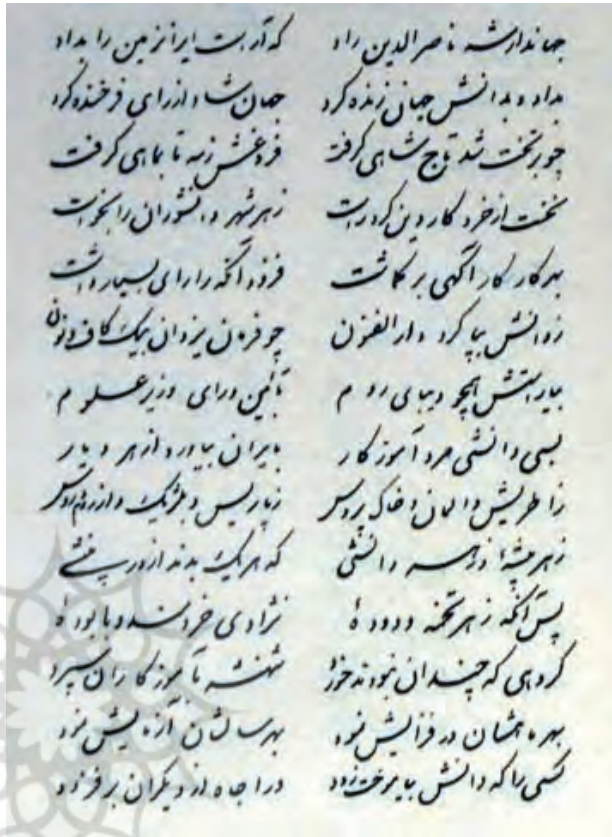 جهاندار شه ناصرالدین راد که آراست ایران‌زمین را بداد
بداد و بدانش جهان زنده کرد جهان شاد از رای فرخنده کرد
چو بر تخت شد تاج شاهی گرفت فروغش ز مه تا بماهی گرفت
نخست از خرد کار دین کرد راست ز هر شهر دانشوران را بخواست
بهر کار کار آگهی بر گماشت فزود آنکه را رای بسیار داشت
ز دانش بپا کرد دارالفنون چو فرمان یزدان بیک کاف و نون
بیاراستش همچو دیبای روم بآئین و رای وزیر علوم
بسی دانشی مرد آموزگار بایران بیاورد از هر دیار
ز اطریش و المان و خاک پروس ز پاریس و بلژیک و از روم و روس
ز هر پیشهٔ وز همه دانشی که هر یک بدند از در
پس آنگه ز هر تخمه و دودهٔ نژادی خردمند و با بودهٔ
گروهی که چندان نبودند خورد شهنشه بآموزگاران سپرد
بهر ماهشان در فزایش نمود بهر سالشان آزمایش نمود
کسی را که دانش بیاموخت زود ورا جاه از دیگران بر فزود